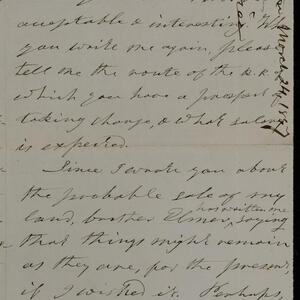 acceptable & interesting. Wh
you write me again, pleas
tell me the route of the R.R.
which you have a prospect
taking charge, & what salary
is expected.
Since I wrote you about
the probable sale of my
land, brother Elmer, has written me, saying
that things might remain
as they are, for the present,
if I wished it. Perhaps,
March 24, 1887